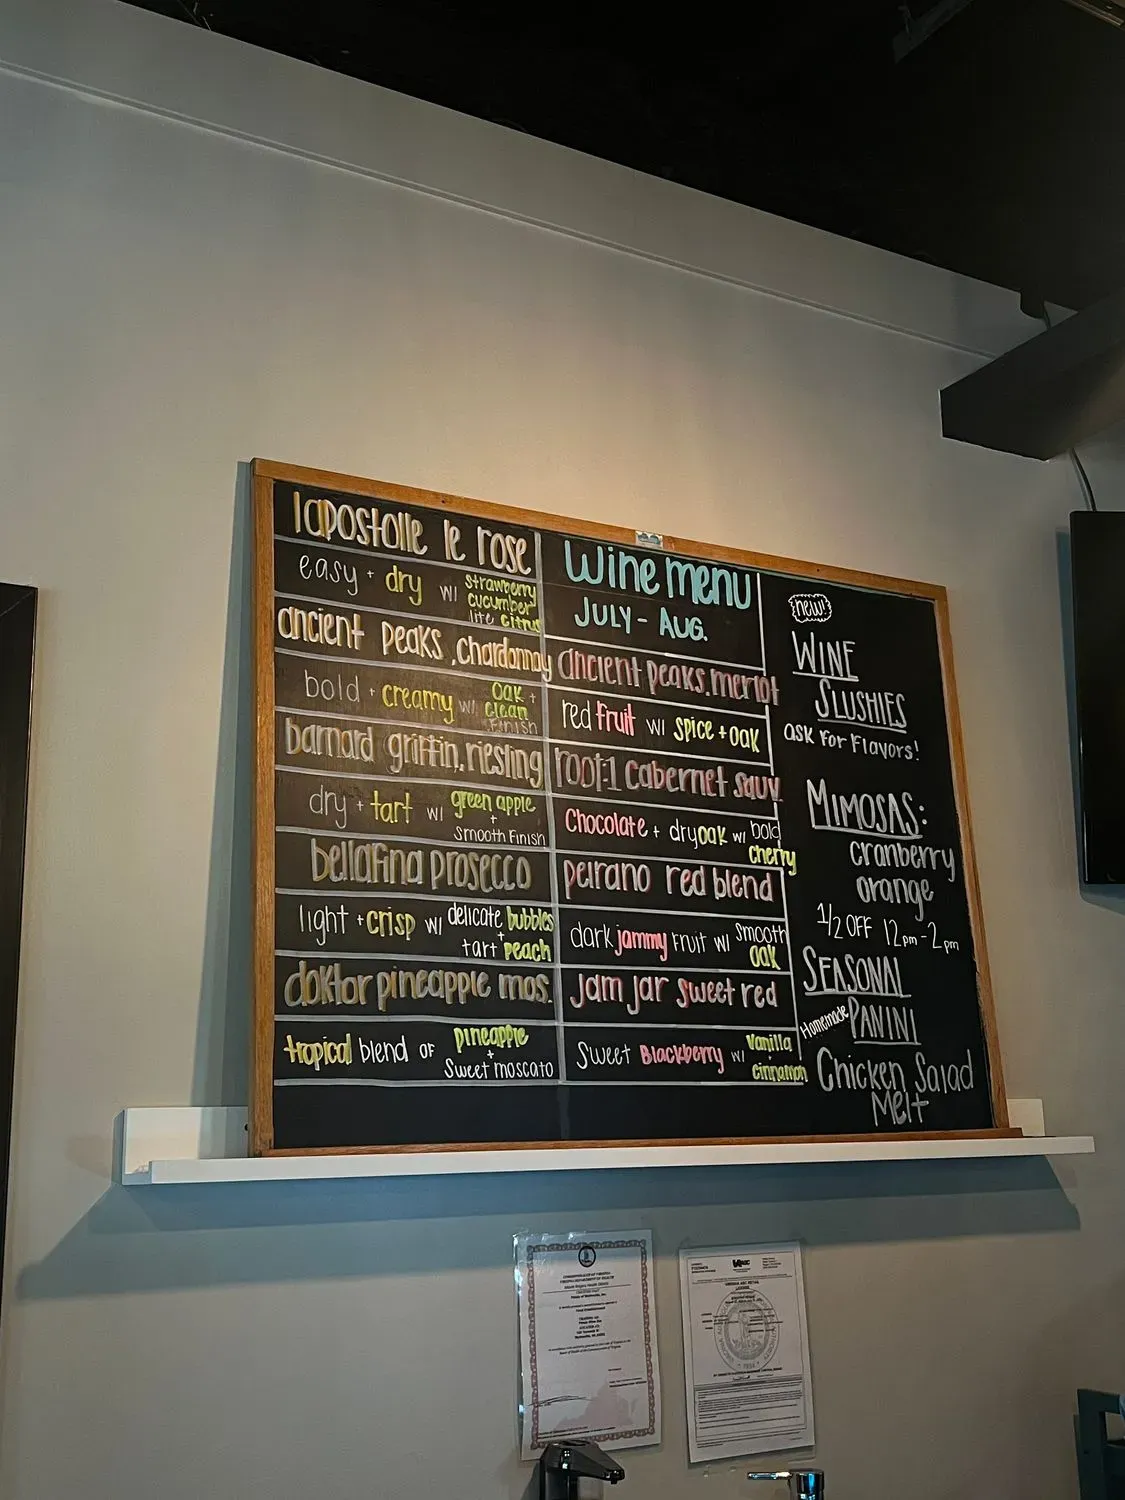 lapostolle le rose
easy + dry w/ strawberry
cucumber
lite citrus
ancient peaks, chardonnay
bold + creamy w/ oak +
clean
finish
barnard griffin. riesling
dry + tart w/ green apple
+
smooth finish
bellafina prosecco
light + crisp w/ delicate bubbles
+
tart peach
doktor pineapple mos.
tropical blend of pineapple
+
sweet moscato
Wine menu
JULY - AUG.
ancient peaks. merlot
red fruit w/ spice + oak
root:1 cabernet sauv
Chocolate + dry oak w/ bold
cherry
peirano red blend
dark jammy fruit w/ smooth
oak
jam jar sweet red
Sweet Blackberry w/ vanilla
+
cinnamon
new!
WINE
SLUSHIES
ask for flavors!
MIMOSAS:
cranberry
orange
1/2 OFF 12pm-2pm
SEASONAL
Homemade PANINI
Chicken Salad
Melt
COMMONWEALTH OF VIRGINIA
VIRGINIA DEPARTMENT OF HEALTH
VIRGINIA ABC RETAIL
LICENSE